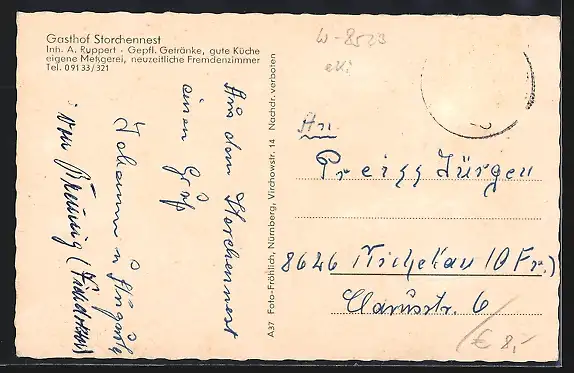 Gasthof Storchennest
Inh. A. Ruppert · Gepfl. Getränke, gute Küche
eigene Metzgerei, neuzeitliche Fremdenzimmer
Tel. 09133/321
Aus dem Storchennest
einen Gruß
Johann u.
von
A37 Foto-Fröhlich, Nürnberg, Virchowstr. 14 Nachdr. verboten
W-8523
An
Preiss Jürgen
8626 Michelau /O Fr.)
Clarusstr. 6
€ 8,-